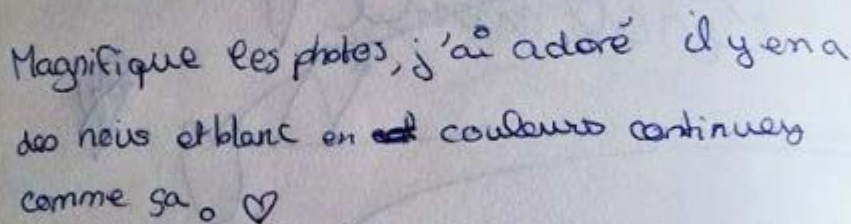 Magnifique les photos, j'ai adoré il y en a
des noirs et blanc en couleurs continuez
comme sa. ♡